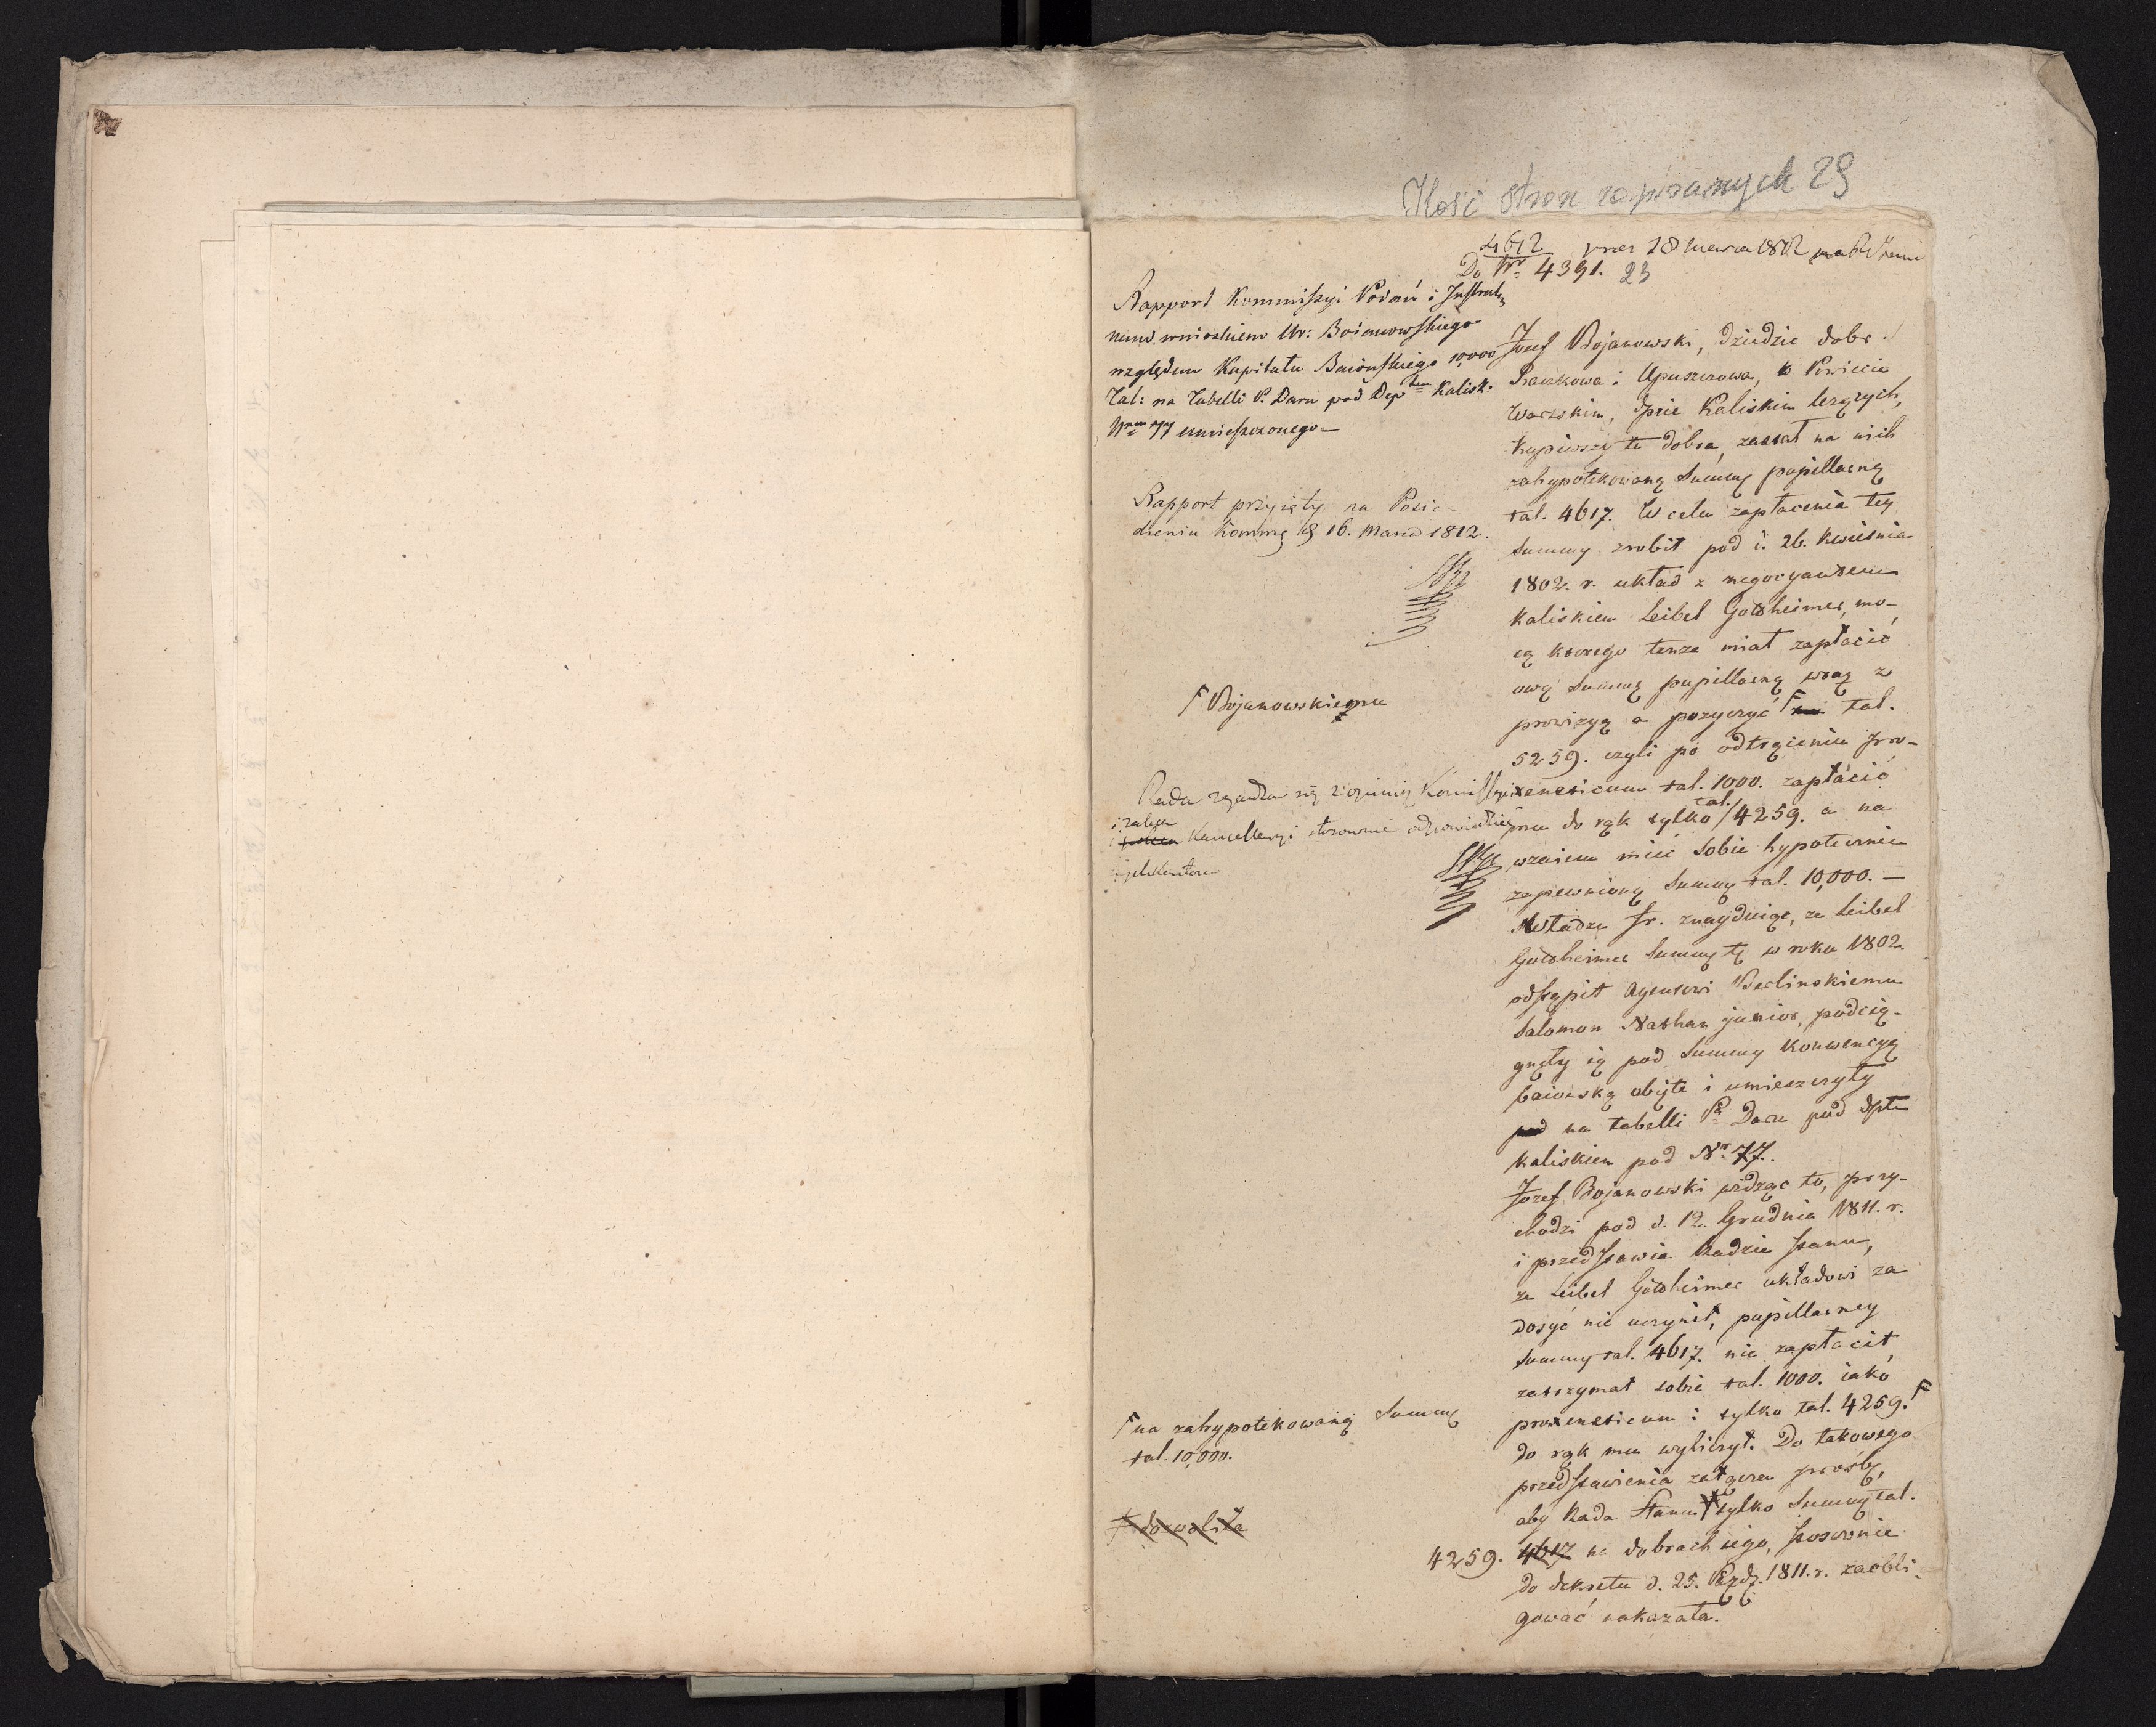 Ilość stron zapisanych 29
4612 pres 18 Marca 1812
Do Nr 4391. 23
Rapport Kommissyi Podań i Instrukcy
nad wnioskiem Ur: Boianowskiego
względem Kapitału Baiońskiego 10,000
Tal: na Tabelli P. Daru pod Dep tem Kalisk.
Nrem 77 umieszczonego —
Rapport przyięty na Posie-
dzeniu Kommis d 16. Marca 1812.
Γ Bojanowskiemu
Rada zgadza się z opinią Kommissyi
i zaleca Kancellaryi stosownie
Γ na zahypotekowaną Summę
tal. 10,000.
Γ dozwoliła
Jozef Bojanowski, Dziedzic dobr
Raczkowa i Upuszczowa, w Powiecie
Warszkim, Dpcie Kaliskim leżących,
kupiwszy te dobra, zastał na nich
zahypotekowaną Summę pupillarną
tal. 4617. W celu zapłacenia tey
Summy zrobił pod d. 26. Kwietnia
1802. r. układ z negocyantem
Kaliskiem Leibel Goldheimer, mo-
cą ktorego tenże miał zapłacić
ową Summę pupillarną wraz z
prowizyą a pożyczyć Γ mu tal.
5259. czyli po odtrąceniu pro-
xeneticum tal. 1000. zapłacić
mu do rąk tylko tal. 4259. a na
wzaiem mieć sobie hypotecznie
zapewnioną Summę tal. 10,000. —
Władze fr. znayduiąc, że Leibel
Goldheimer Summę tę w roku 1802.
odstąpił Agentowi Berlinskiemu
Salomon Nathan junior, podcią-
gnęły ią pod Summy konwencyą
baiońską obięte i umieszczyły
pod na tabelli P. Daru pod Dpte
Kaliskiem pod Nr. 77.
Jozef Bojanowski widząc to, przy-
chodzi pod d. 12. Grudnia 1811. r.
i przedstawia Radzie Stanu,
że Leibel Goldheimer układowi za
dosyć nie uczynił, pupillarney
Summy tal. 4617. nie zapłacił,
zatrzymał sobie tal. 1000. iako
proxeneticum i tylko tal. 4259. Γ
do rąk mu wyliczył. Do takowego
przedstawienia załącza prośbę,
aby Rada Stanu Γ tylko Summę tal.
4259. 4617 na dobrach iego, stosownie
do dekretu d. 25. Pazdz. 1811. r. zaobli-
gować nakazała.